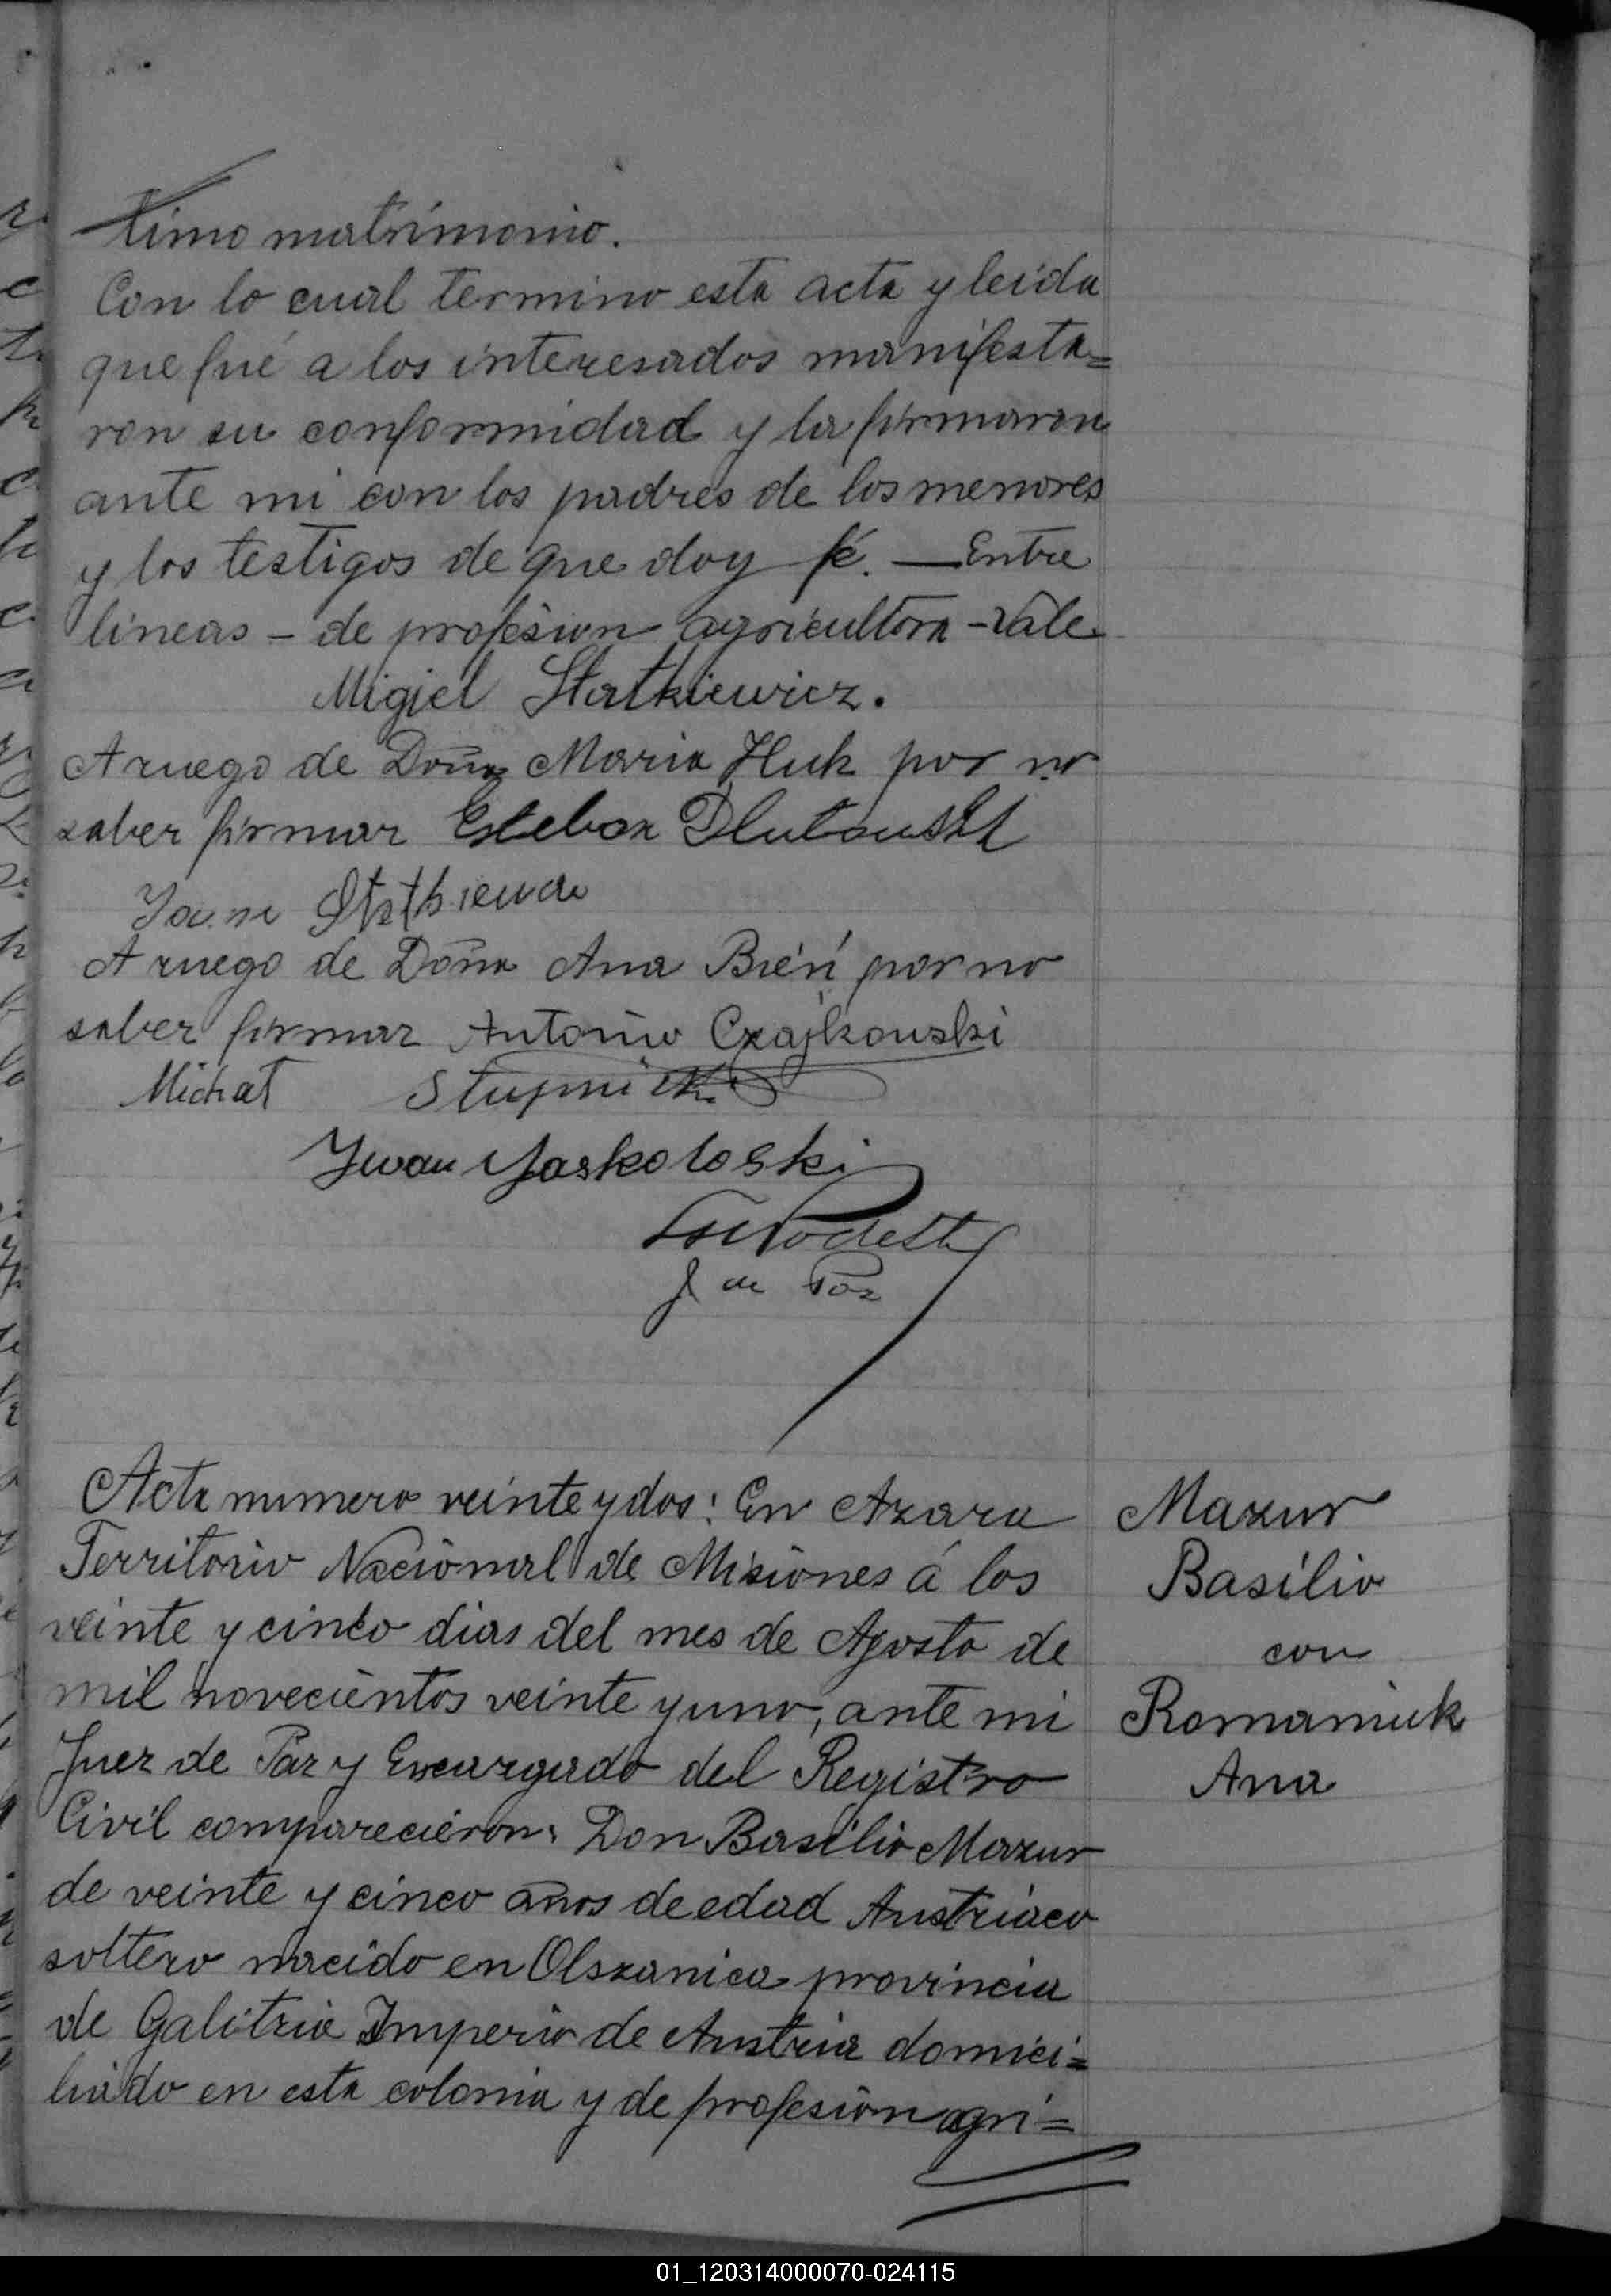 timo matrimonio.
Con lo cual termino esta acta y leida
que fué a los interesados manifesta=
ron su conformidad y la firmaron
ante mi con los padres de los menores
y los testigos de que doy fé. — Entre
lineas – de profesion agricultora – Vale
Migiel Statkiewicz.
A ruego de Doña Maria Huk por no
saber firmar Esteban Dlutouski
A ruego de Doña Ana Bién por no
saber firmar Antonio Czajkowski
Michat Stupnicki
Iwan Jaskoloski
J de Paz
Acta numero veinte y dos: En Azara
Territorio Nacional de Misiones á los
veinte y cinco dias del mes de Agosto de
mil novecientos veinte y uno, ante mi
Juez de Paz y Encargado del Registro
Civil comparecieron: Don Basilio Mazur
de veinte y cinco años de edad Austriaco
soltero nacido en Olszanica provincia
de Galitzia Imperio de Austria domici=
liado en esta colonia y de profesion agri=
Mazur
Basilio
con
Romaniuk
Ana
01_120314000070-024115